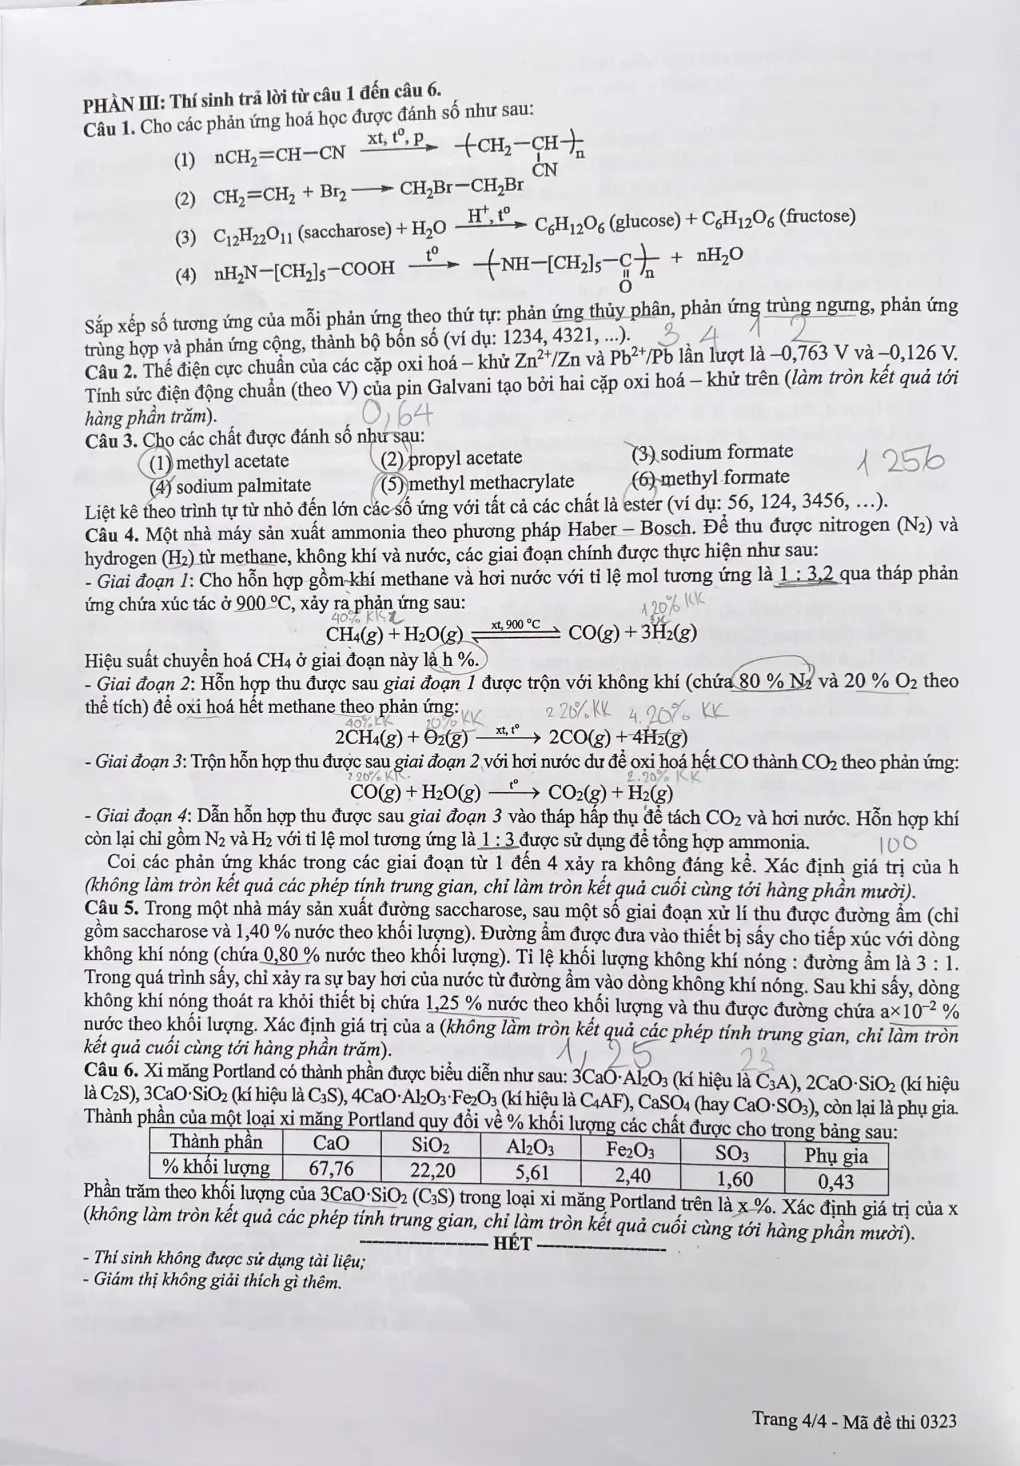 PHẦN III: Thí sinh trả lời từ câu 1 đến câu 6.
Câu 1. Cho các phản ứng hoá học được đánh số như sau:
(1) nCH₂=CH−CN xt, tº, p → −(CH₂−CH)−n
CN
(2) CH₂=CH₂ + Br₂ → CH₂Br−CH₂Br
(3) C₁₂H₂₂O₁₁ (saccharose) + H₂O H⁺, tº → C₆H₁₂O₆ (glucose) + C₆H₁₂O₆ (fructose)
(4) nH₂N−[CH₂]₅−COOH tº → −(NH−[CH₂]₅−C)−n + nH₂O
O
Sắp xếp số tương ứng của mỗi phản ứng theo thứ tự: phản ứng thủy phân, phản ứng trùng ngưng, phản ứng
trùng hợp và phản ứng cộng, thành bộ bốn số (ví dụ: 1234, 4321, ...). 3 4 1 2
Câu 2. Thế điện cực chuẩn của các cặp oxi hoá – khử Zn²⁺/Zn và Pb²⁺/Pb lần lượt là –0,763 V và –0,126 V.
Tính sức điện động chuẩn (theo V) của pin Galvani tạo bởi hai cặp oxi hoá – khử trên (làm tròn kết quả tới
hàng phần trăm). 0,64
Câu 3. Cho các chất được đánh số như sau:
(1) methyl acetate (2) propyl acetate (3) sodium formate
1 256
(4) sodium palmitate (5) methyl methacrylate (6) methyl formate
Liệt kê theo trình tự từ nhỏ đến lớn các số ứng với tất cả các chất là ester (ví dụ: 56, 124, 3456, …).
Câu 4. Một nhà máy sản xuất ammonia theo phương pháp Haber – Bosch. Để thu được nitrogen (N₂) và
hydrogen (H₂) từ methane, không khí và nước, các giai đoạn chính được thực hiện như sau:
- Giai đoạn 1: Cho hỗn hợp gồm khí methane và hơi nước với tỉ lệ mol tương ứng là 1 : 3,2 qua tháp phản
ứng chứa xúc tác ở 900 ºC, xảy ra phản ứng sau:
40% KK 120% KK
CH₄(g) + H₂O(g) xt, 900 ºC ⇌ CO(g) + 3H₂(g)
Hiệu suất chuyển hoá CH₄ ở giai đoạn này là h %.
- Giai đoạn 2: Hỗn hợp thu được sau giai đoạn 1 được trộn với không khí (chứa 80 % N₂ và 20 % O₂ theo
thể tích) để oxi hoá hết methane theo phản ứng:
40% KK 20% KK 2 20% KK 4. 20% KK
2CH₄(g) + O₂(g) xt, tº → 2CO(g) + 4H₂(g)
- Giai đoạn 3: Trộn hỗn hợp thu được sau giai đoạn 2 với hơi nước dư để oxi hoá hết CO thành CO₂ theo phản ứng:
2 20% KK 2. 20% KK
CO(g) + H₂O(g) tº → CO₂(g) + H₂(g)
- Giai đoạn 4: Dẫn hỗn hợp thu được sau giai đoạn 3 vào tháp hấp thụ để tách CO₂ và hơi nước. Hỗn hợp khí
còn lại chỉ gồm N₂ và H₂ với tỉ lệ mol tương ứng là 1 : 3 được sử dụng để tổng hợp ammonia. 100
Coi các phản ứng khác trong các giai đoạn từ 1 đến 4 xảy ra không đáng kể. Xác định giá trị của h
(không làm tròn kết quả các phép tính trung gian, chỉ làm tròn kết quả cuối cùng tới hàng phần mười).
Câu 5. Trong một nhà máy sản xuất đường saccharose, sau một số giai đoạn xử lí thu được đường ẩm (chỉ
gồm saccharose và 1,40 % nước theo khối lượng). Đường ẩm được đưa vào thiết bị sấy cho tiếp xúc với dòng
không khí nóng (chứa 0,80 % nước theo khối lượng). Tỉ lệ khối lượng không khí nóng : đường ẩm là 3 : 1.
Trong quá trình sấy, chỉ xảy ra sự bay hơi của nước từ đường ẩm vào dòng không khí nóng. Sau khi sấy, dòng
không khí nóng thoát ra khỏi thiết bị chứa 1,25 % nước theo khối lượng và thu được đường chứa a×10⁻² %
nước theo khối lượng. Xác định giá trị của a (không làm tròn kết quả các phép tính trung gian, chỉ làm tròn
kết quả cuối cùng tới hàng phần trăm). 1,25 23
Câu 6. Xi măng Portland có thành phần được biểu diễn như sau: 3CaO·Al₂O₃ (kí hiệu là C₃A), 2CaO·SiO₂ (kí hiệu
là C₂S), 3CaO·SiO₂ (kí hiệu là C₃S), 4CaO·Al₂O₃·Fe₂O₃ (kí hiệu là C₄AF), CaSO₄ (hay CaO·SO₃), còn lại là phụ gia.
Thành phần của một loại xi măng Portland quy đổi về % khối lượng các chất được cho trong bảng sau:
Thành phần CaO SiO₂ Al₂O₃ Fe₂O₃ SO₃ Phụ gia
% khối lượng 67,76 22,20 5,61 2,40 1,60 0,43
Phần trăm theo khối lượng của 3CaO·SiO₂ (C₃S) trong loại xi măng Portland trên là x %. Xác định giá trị của x
(không làm tròn kết quả các phép tính trung gian, chỉ làm tròn kết quả cuối cùng tới hàng phần mười).
-------------------- HẾT --------------------
- Thí sinh không được sử dụng tài liệu;
- Giám thị không giải thích gì thêm.
Trang 4/4 - Mã đề thi 0323